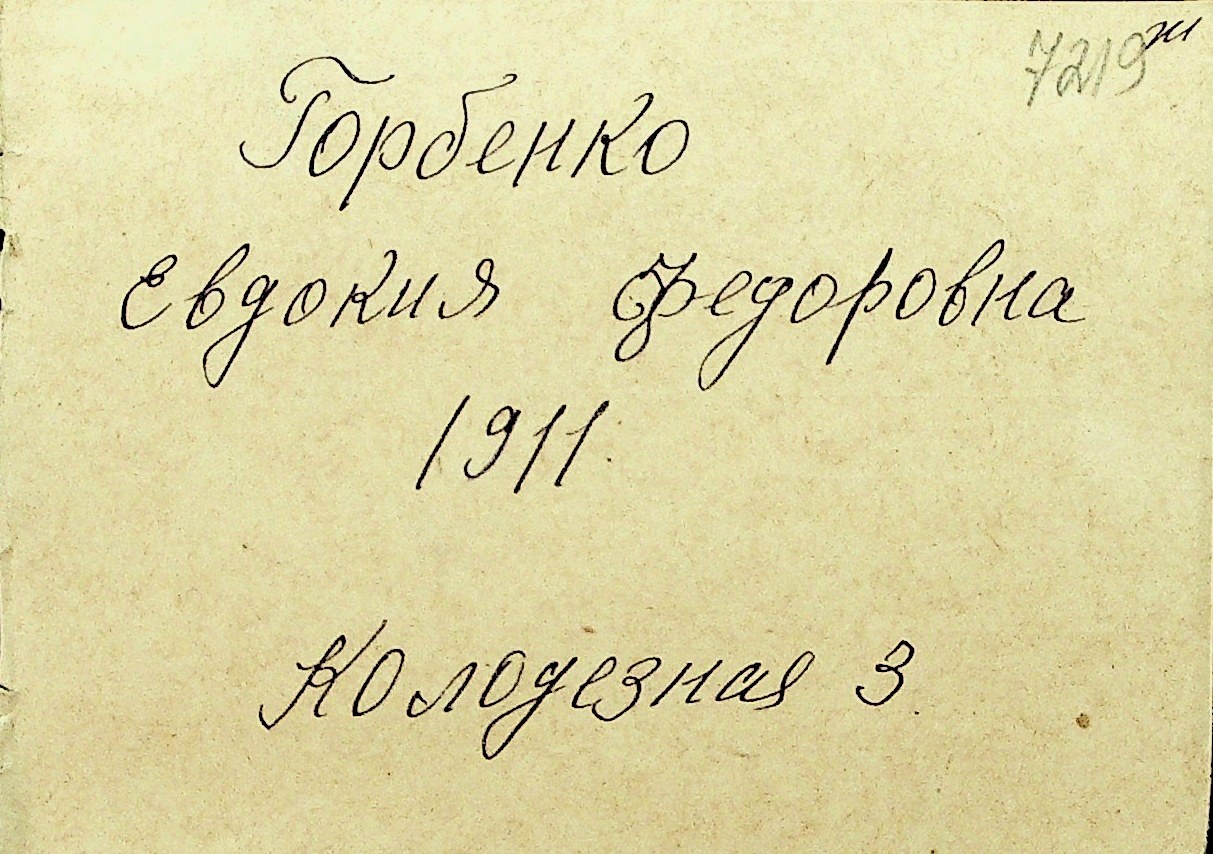 7219 ж
Горбенко
Евдокия Федоровна
1911.
Колодезная 3.